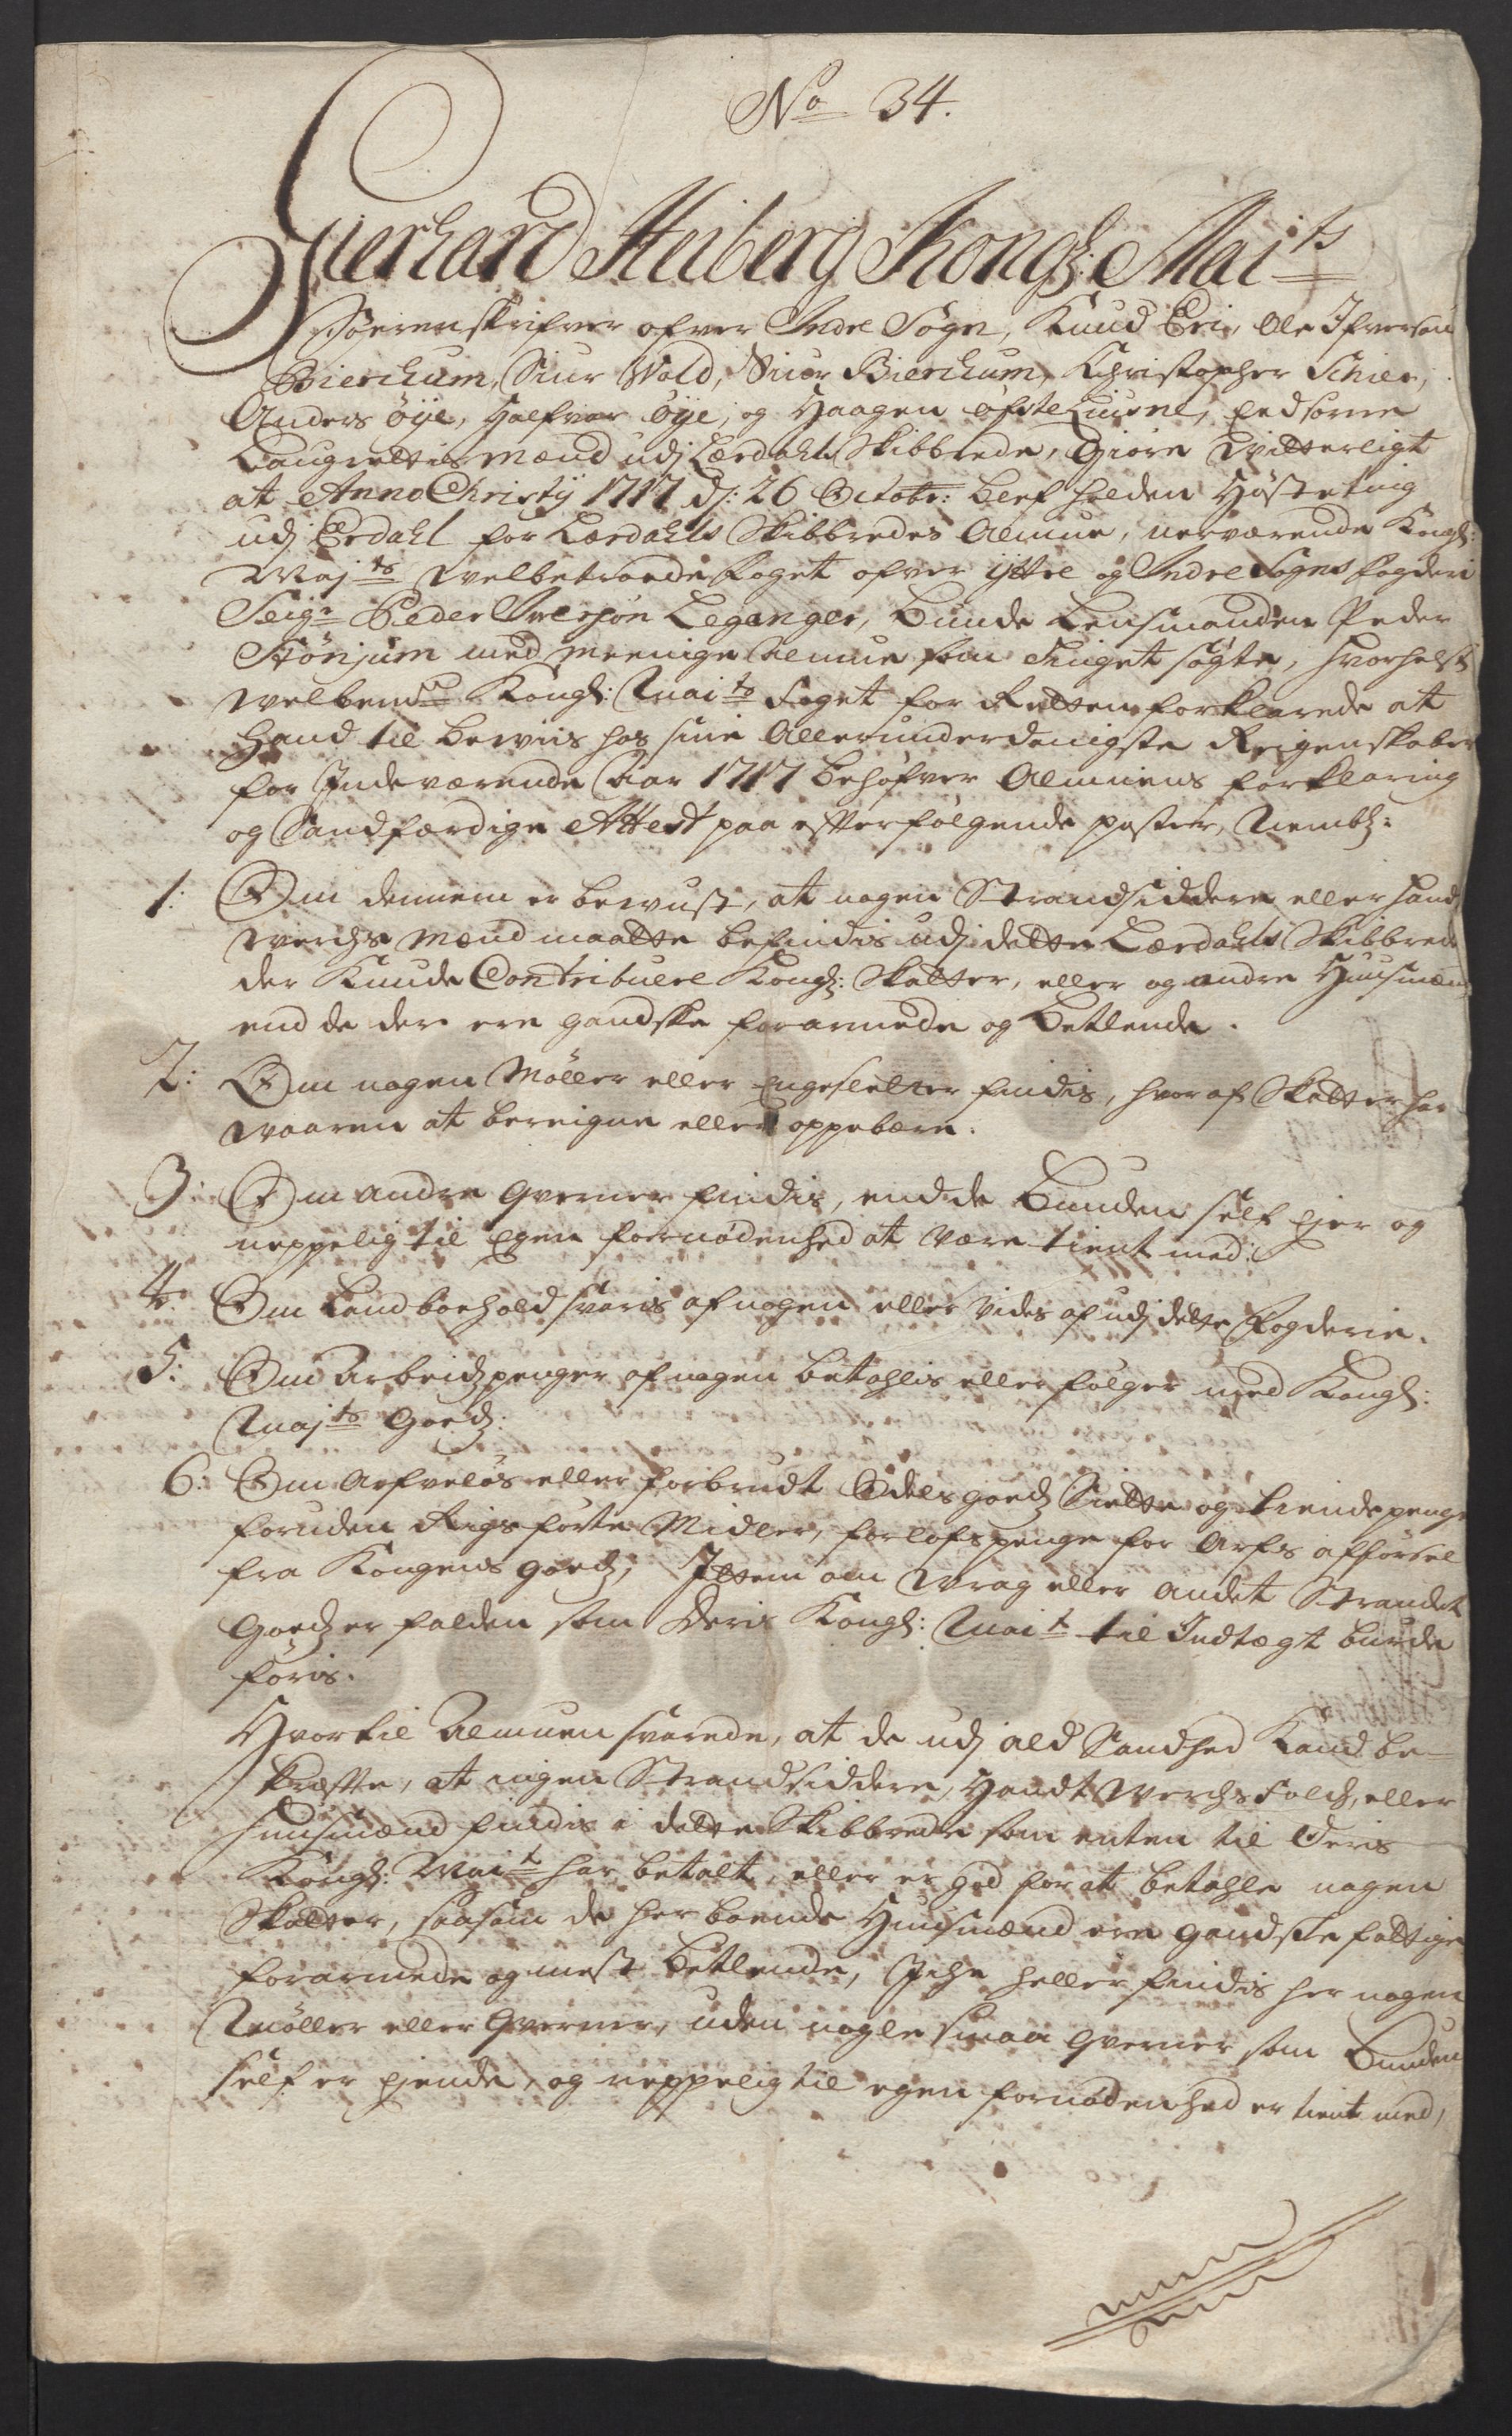 No 34.
Gierhard Heiberg Kongl: Mai:ts
Sorenskrifver ofver Indre Sogn, Knud Eri, Ole Ifversøn
Bierchum, Siur Wold, Siur Bierchum, Christopher Schier,
Anders Øije, Halfvor Øije, og Haagen Øfste Qvame, Eedsorne
Laugrettis Mænd udj Lærdahls Skibbrede, Giøre Vitterligt
at Anno Christij 1717 d: 26 Octobr: blef holden Høste ting
udj Erdahl for Lærdahls Skibbredes Almue, nerværende Kongl:
Maj:ts Welbetroede foget ofver ijttre og Indre Sogns fogderi
Seigr Peder Iversøn Leganger, Bunde Lensmanden Peder
Stønjum med meenige Almue som tinget søgte, hvorhelst
Welbemte Kongl: Mai:ts Foget for Retten forklarede at
Hand til Beviis hos sine Allerunderdanigste Reigenskaber
for Indeværende Aar 1717 behøfver Almuens forklaring
og Sandfærdige Attest paa effterfølgende poster, Nembl:
1: Om dennem er bewust, at nogen Strandsiddere eller Hand
werchs Mænd maatte befindis udj dette Lærdahls Skibbrede
der Kunde Contribuere Kongl: Skatter, eller og andre Huusmænd
end de der ere gandske forarmede og Betlende.
2: Om nogen Møller eller Engesletter findis, hvoraf Skatter har
Waaren at bereigne eller oppebære.
3: Om andre Qverner findis, end de Bunden self ejer og
neppelig til Egen fornødenhed at være tient med.
4. Om Landboehold svaris af nogen eller Vides af udj dette Fogderie.
5: Om Arbeidzpenger af nogen betahlis eller følger med Kongl:
Maj:ts Goedz:
6: Om Arfveløs eller forbrudt Odelsgoedz Siette og tiendepenge
foruden Rigs førte Midler, forlofspenge for Arfs afførsel
fra Kongens goedz, Ittem om Wrag eller andet Strandet
Goedz er falden som Deris Kongl: Mai:t til Indtægt burde
føris.
Hvortil Almuen svarede, at de udj ald Sandhed Kand be-
kræffte, at ingen Strandsiddere, Handtwerchs Folch, eller
Huusmænd findis i dette Skibbrede som enten til Deris
Kongl: Mai:t har betalt, eller er god for at betahle nogen
Skatter, saasom de her boende Huusmænd ere gandske fattige
forarmede og mest betlende, Iche heller findis her nogen
Møller eller Qverner, uden nogle smaa Qverner som Bunden
self er ejende, og neppelig til egen fornødenhed er tient med,